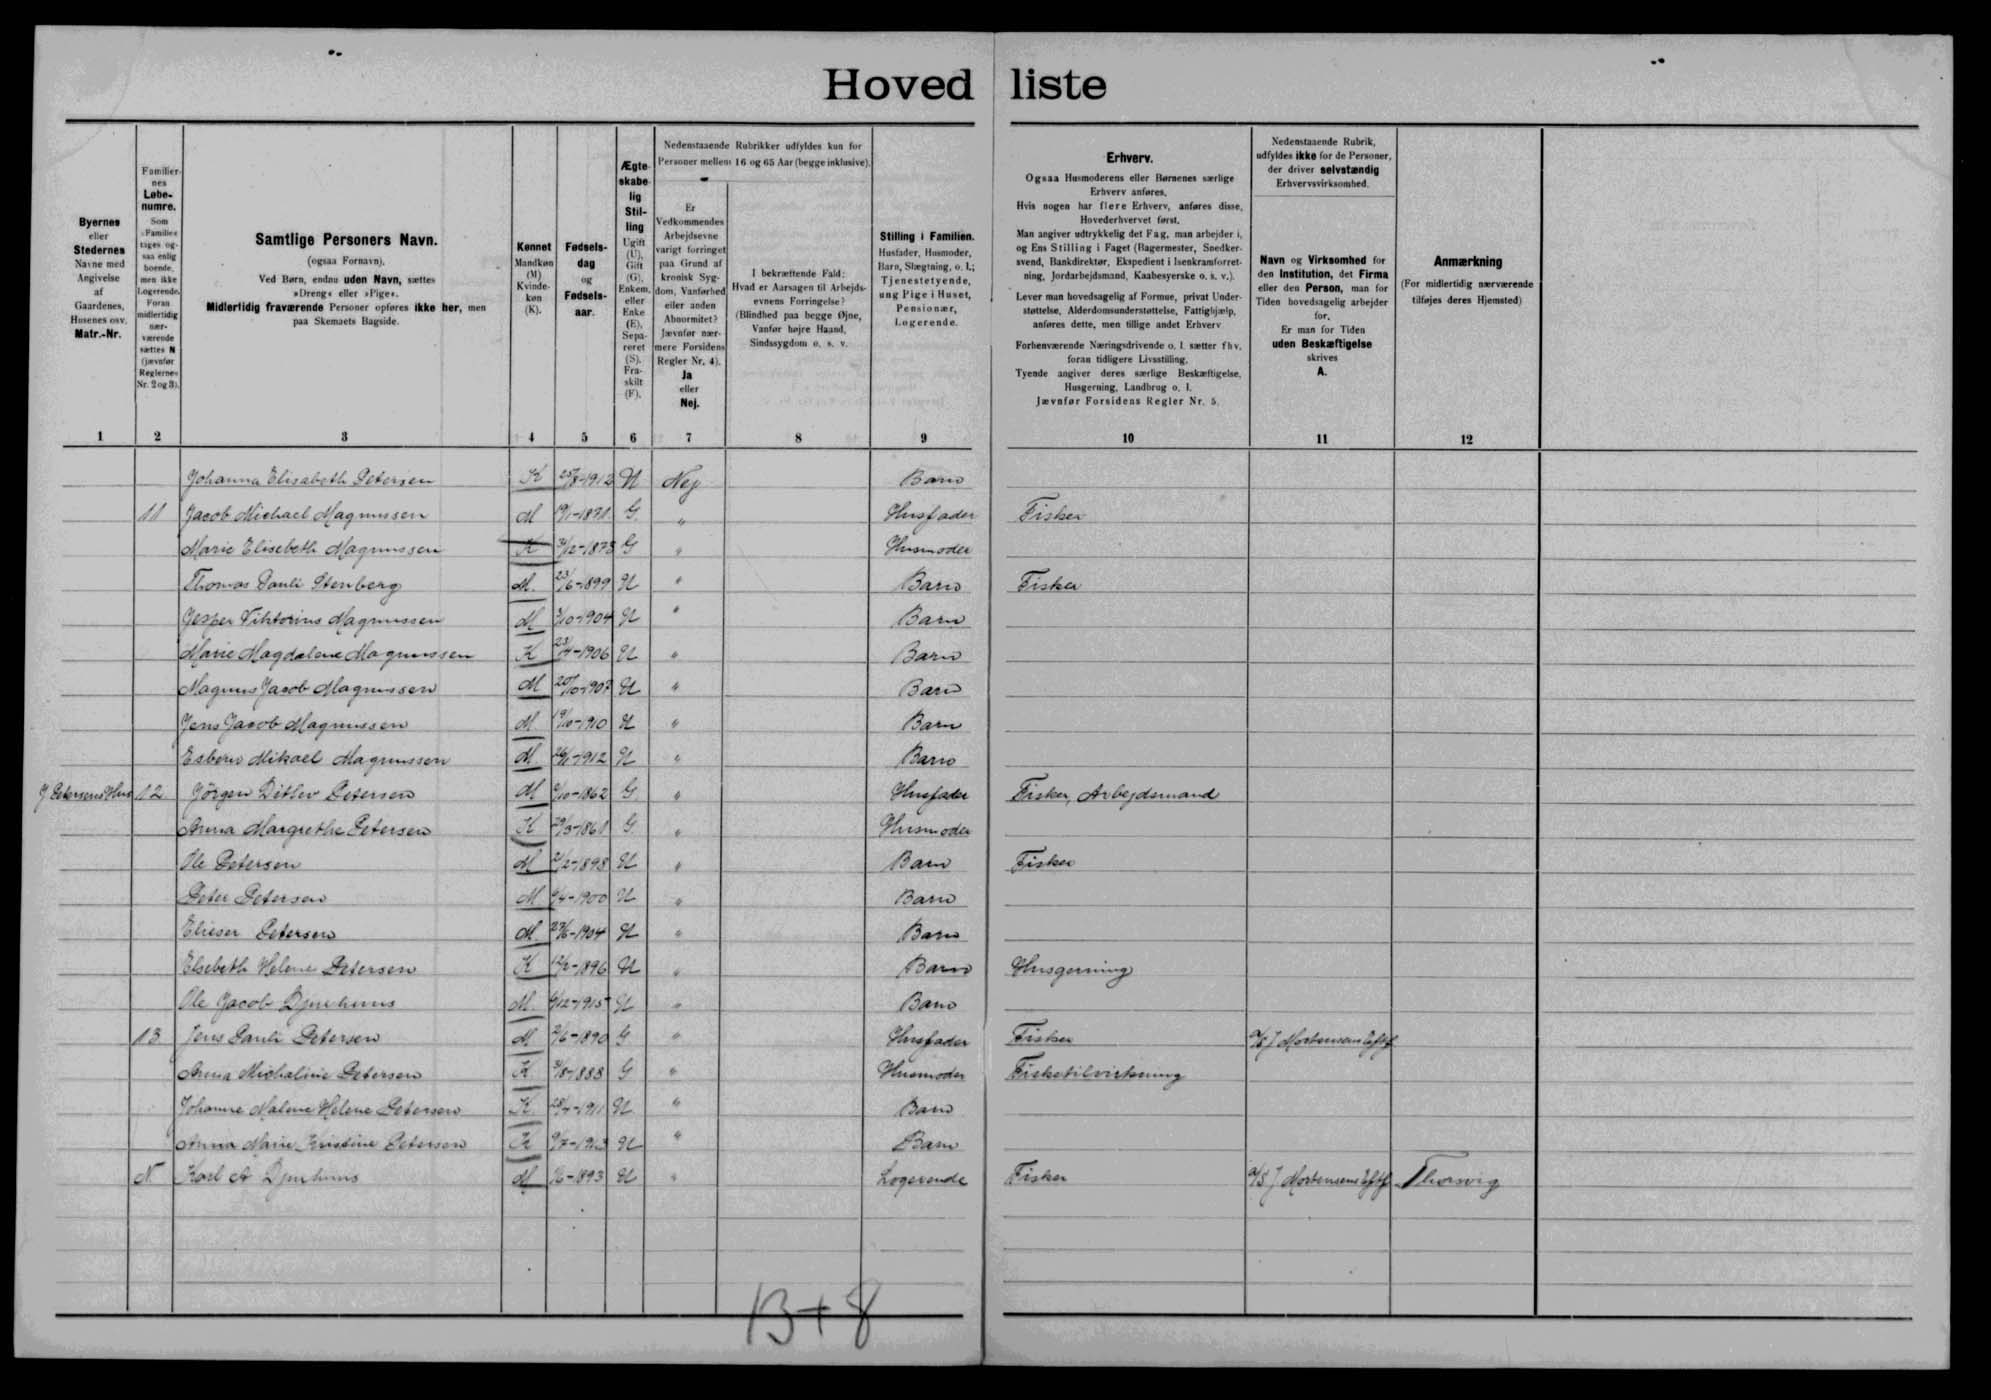 Hoved liste
Byernes
eller
Stedernes
Navne med
Angivelse
af
Gaardenes,
Husenes osv.
Matr.-Nr.
Familier-
nes
Løbe-
numre.
Som
»Familie«
tages og-
saa enlig
boende,
men ikke
Logerende.
Foran
midlertidig
nær-
værende
sættes N
(jævnfør
Reglernes
Nr. 2 og 3).
Samtlige Personers Navn.
(ogsaa Fornavn).
Ved Børn, endnu uden Navn, sættes
»Dreng« eller »Pige«.
Midlertidig fraværende Personer opføres ikke her, men
paa Skemaets Bagside.
Kønnet
Mandkøn
(M)
Kvinde-
køn
(K).
Fødsels-
dag
og
Fødsels-
aar.
Ægte-
skabe-
lig
Stil-
ling
Ugift
(U),
Gift
(G),
Enkem.
eller
Enke
(E),
Sepa-
reret
(S),
Fra-
skilt
(F).
Nedenstaaende Rubrikker udfyldes kun for
Personer mellem 16 og 65 Aar (begge inklusive).
Er
Vedkommendes
Arbejdsevne
varigt forringet
paa Grund af
kronisk Syg-
dom, Vanførhed
eller anden
Abnormitet?
Jævnfør nær-
mere Forsidens
Regler Nr. 4).
Ja
eller
Nej.
I bekræftende Fald:
Hvad er Aarsagen til Arbejds-
evnens Forringelse?
(Blindhed paa begge Øjne,
Vanfør højre Haand,
Sindssygdom o. s. v.
Stilling i Familien.
Husfader, Husmoder,
Barn, Slægtning, o. l.;
Tjenestetyende,
ung Pige i Huset,
Pensionær,
Logerende.
Erhverv.
Ogsaa Husmoderens eller Børnenes særlige
Erhverv anføres.
Hvis nogen har flere Erhverv, anføres disse,
Hovederhvervet først.
Man angiver udtrykkelig det Fag, man arbejder i,
og Ens Stilling i Faget (Bagermester, Snedker-
svend, Bankdirektør, Ekspedient i Isenkramforret-
ning, Jordarbejdsmand, Kaabesyerske o. s. v.).
Lever man hovedsagelig af Formue, privat Under-
støttelse, Alderdomsunderstøttelse, Fattighjælp,
anføres dette, men tillige andet Erhverv
Forhenværende Næringsdrivende o. l. sætter fhv.
foran tidligere Livsstilling.
Tyende angiver deres særlige Beskæftigelse,
Husgerning, Landbrug o. l.
Jævnfør Forsidens Regler Nr. 5.
Nedenstaaende Rubrik,
udfyldes ikke for de Personer,
der driver selvstændig
Erhvervsvirksomhed.
Navn og Virksomhed for
den Institution, det Firma
eller den Person, man for
Tiden hovedsagelig arbejder
for.
Er man for Tiden
uden Beskæftigelse
skrives
A.
Anmærkning
(For midlertidig nærværende
tilføjes deres Hjemsted)
1 2 3 4 5 6 7 8 9 10 11 12
Johanna Elisabeth Petersen K 25/8-1912 U Nej Barn
11 Jacob Michael Magnussen M 19/1-1871 G " Husfader Fisker
Marie Elisebeth Magnussen K /12-1873 G " Husmoder
Thomas Pauli Stenberg M. 23/6-1899 U " Barn Fisker
Jesper Viktorius Magnussen M /10-1904 U " Barn
Marie Magdalene Magnussen K 23/4-1906 U " Barn
Magnus Jacob Magnussen M 20/10-1907 U " Barn
Jens Jacob Magnussen M 19/10-1910 U " Barn
Esbern Mikael Magnussen M 26/1-1912 U " Barn
J Petersens Hus 12 Jörgen Ditlev Petersen M /10-1862 G " Husfader Fisker, Arbejdsmand
Anna Margrethe Petersen K 29/3-1861 G " Husmoder
Ole Petersen M 2/2-1898 U " Barn Fisker
Peter Petersen M /4-1900 U " Barn
Elieser Petersen M. 27/6-1904 U " Barn
Elsebeth Helene Petersen K 12/2-1896 U " Barn Husgerning
Ole Jacob Djurhuus M. /12-1915 U " Barn
13 Jens Pauli Petersen M 2/6-1890 G " Husfader Fisker A/S J Mortensens Eftf
Anna Michaline Petersen K /8-1888 G " Husmoder Fisketilvirkning
Johanne Malene Helene Petersen K. 28/4-1911 U " Barn
Anna Marie Kristine Petersen K 9/7-1913 U " Barn
N Karl A Djurhuus M /6-1893 U " Logerende Fisker A/S J Mortensens Eftf Thorsvig
13+8